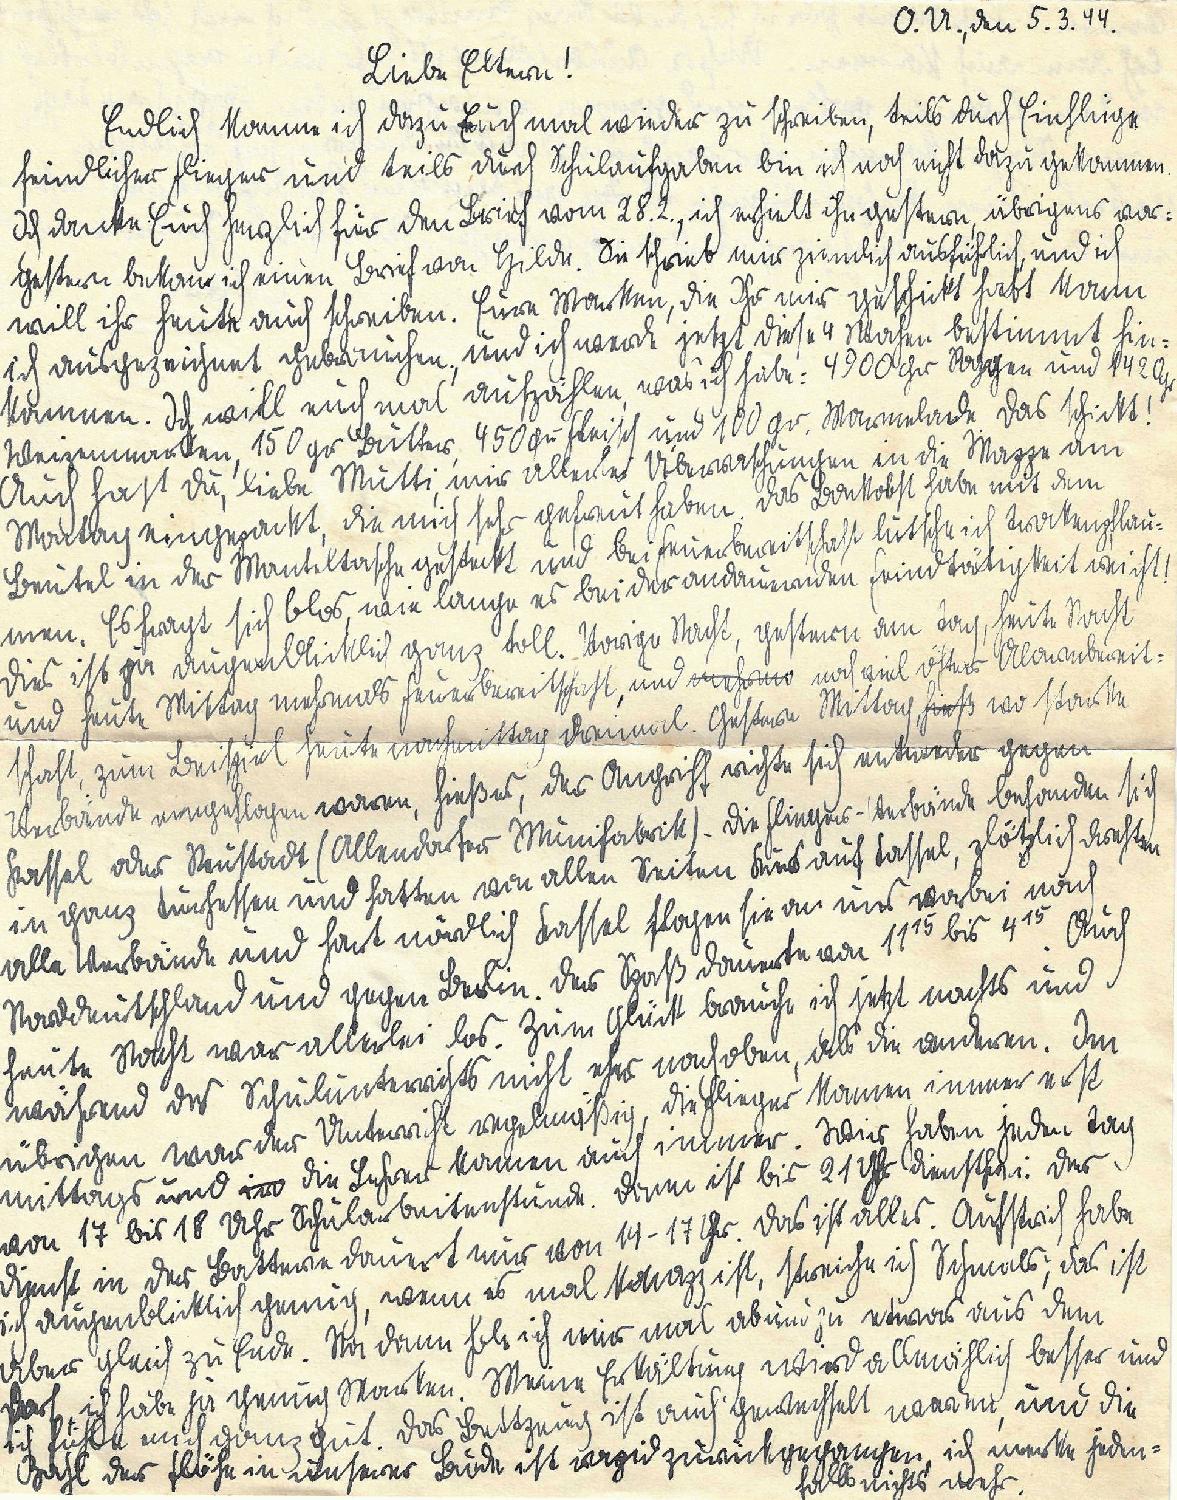 O.U., den 5.3.44.
Liebe Eltern!
Endlich komme ich dazu Euch mal wieder zu schreiben, teils durch Einflüge
feindlicher Flieger und teils durch Schulaufgaben bin ich noch nicht dazu gekommen.
Ich danke Euch herzlich für den Brief vom 28.2., ich erhielt ihn gestern, übrigens vor=
gestern bekam ich einen Brief von Hilde. Sie schrieb mir ziemlich ausführlich, und ich
will ihr heute auch schreiben. Eure Marken, die Ihr mir geschickt habt kann
ich ausgezeichnet gebrauchen, und ich werde jetzt diese 4 Wochen bestimmt hin=
kommen. Ich will euch mal aufzählen, was ich habe: 4900 gr Roggen und 1420 gr
Weizenmarken, 150 gr Butter, 450 gr Fleisch und 100 gr. Marmelade. Das schickt!
Auch hast Du, liebe Mutti, mir allerlei Überraschungen in die Mappe am
Montag eingepackt, die mich sehr gefreut haben. Das Backobst habe mit dem
Beutel in der Manteltasche gesteckt und bei Feuerbereitschaft lutsche ich Trockenpflau=
men. Es fragt sich blos, wie lange es bei der andauernden Feindtätigkeit reicht!
Dies ist ja augenblicklich ganz toll. Vorige Nacht, gestern am Tag, heute Nacht
und heute Mittag mehrmals Feuerbereitschaft, und noch viel öfters Alarmbereit=
schaft, zum Beispiel heute nachmittag dreimal. Gestern Mittag, wo starke
Verbände eingeflogen waren, hieß es, der Angriff richte sich entweder gegen
Kassel oder Neustadt (Allendorfer Munifabrik). Die Flieger-Verbände befanden sich
in ganz Kurhessen und hatten von allen Seiten Kurs auf Kassel, plötzlich drehten
alle Verbände und hart nördlich Kassel flogen sie an uns vorbei nach
Norddeutschland und gegen Berlin. Der Spaß dauerte von 11¹⁵ bis 4¹⁵. Auch
heute Nacht war allerlei los. Zum Glück brauche ich jetzt nachts und
während des Schulunterrichts nicht eher nach oben, als die anderen. Im
übrigen war der Unterricht regelmäßig, die Flieger kamen immer erst
mittags und die Lehrer kamen auch immer. Wir haben jeden Tag
von 17 bis 18 Uhr Schularbeitenstunde. Dann ist bis 21 Uhr dienstfrei. Der
Dienst in der Batterie dauert nur von 14-17 Uhr. Das ist alles. Aufstrich habe
ich augenblicklich genug, wenn es mal knapp ist, streiche ich Schmalz, das ist
aber gleich zu Ende. Na dann hole ich mir mal ab und zu etwas aus dem
Dorf, ich habe ja genug Marken. Meine Erkältung wird allmählich besser und
ich fühle mich ganz gut. Das Bettzeug ist auch gewechselt worden, und die
Zahl der Flöhe in unserer Bude ist rapid zurückgegangen, ich merke jeden=
falls nichts mehr.